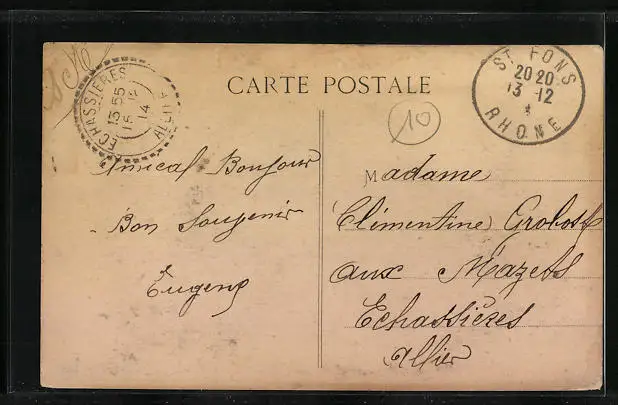 CARTE POSTALE
ECHASSIÈRES
13 55
14
ALLIER
ST FONS
20 20
13 - 12
*
RHONE
10
Amical Bonjour
Bon Souvenir
Eugène
Madame
Clémentine Grobost
aux Mazets
Echassières
Allier